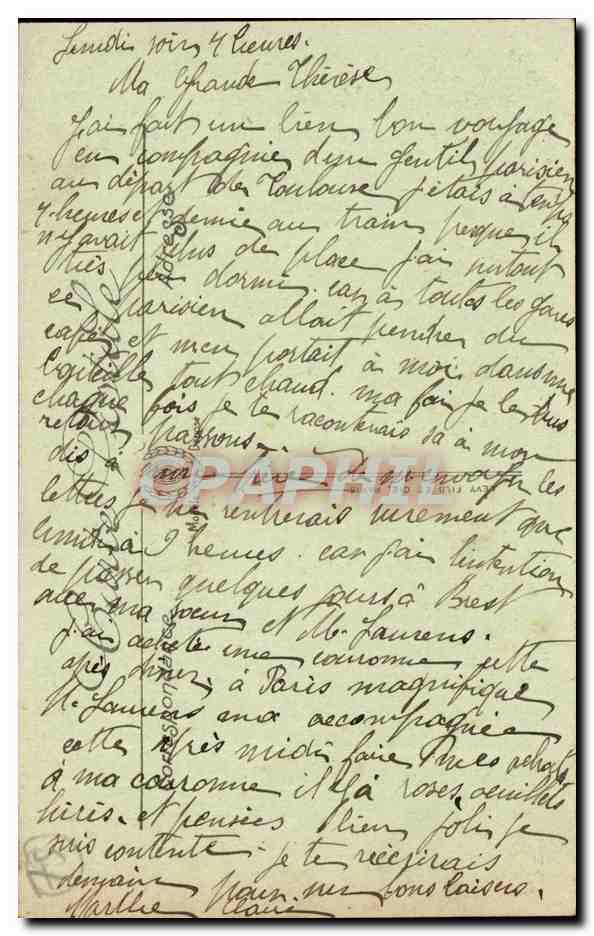 Lundi soir 4 heures.
Ma Grande Thérèse
J'ai fait un bien bon voyage
en compagnie d'un gentil parisien
au départ de Toulouse j'étais à temps
4 heures et demie au train presque il
n'y avait plus de place j'ai surtout
très peu dormi. car à toutes les gares
ce parisien allait prendre du
café et m'en portait à moi dans une
bouteille tout chaud. ma foi je le bus
chaque fois je te raconterais sa à mon
retour passons.
dis à mr de m'envoyer les
lettres, je ne rentrerais surement que
à 9 heures. car j'ai l'intention
de passer quelques jours à Brest
avec ma soeur et Mr Laurens.
j'ai acheté une couronne cette
après diner, à Paris magnifique
Mr Laurens m'a accompagnée
cette après midi faire mes achats
à ma couronne il y a roses, oeuillets
et pensées bien joli je
suis contente. je te
demain pour
Marthe
Adresse
Correspondance
CPAPHIL